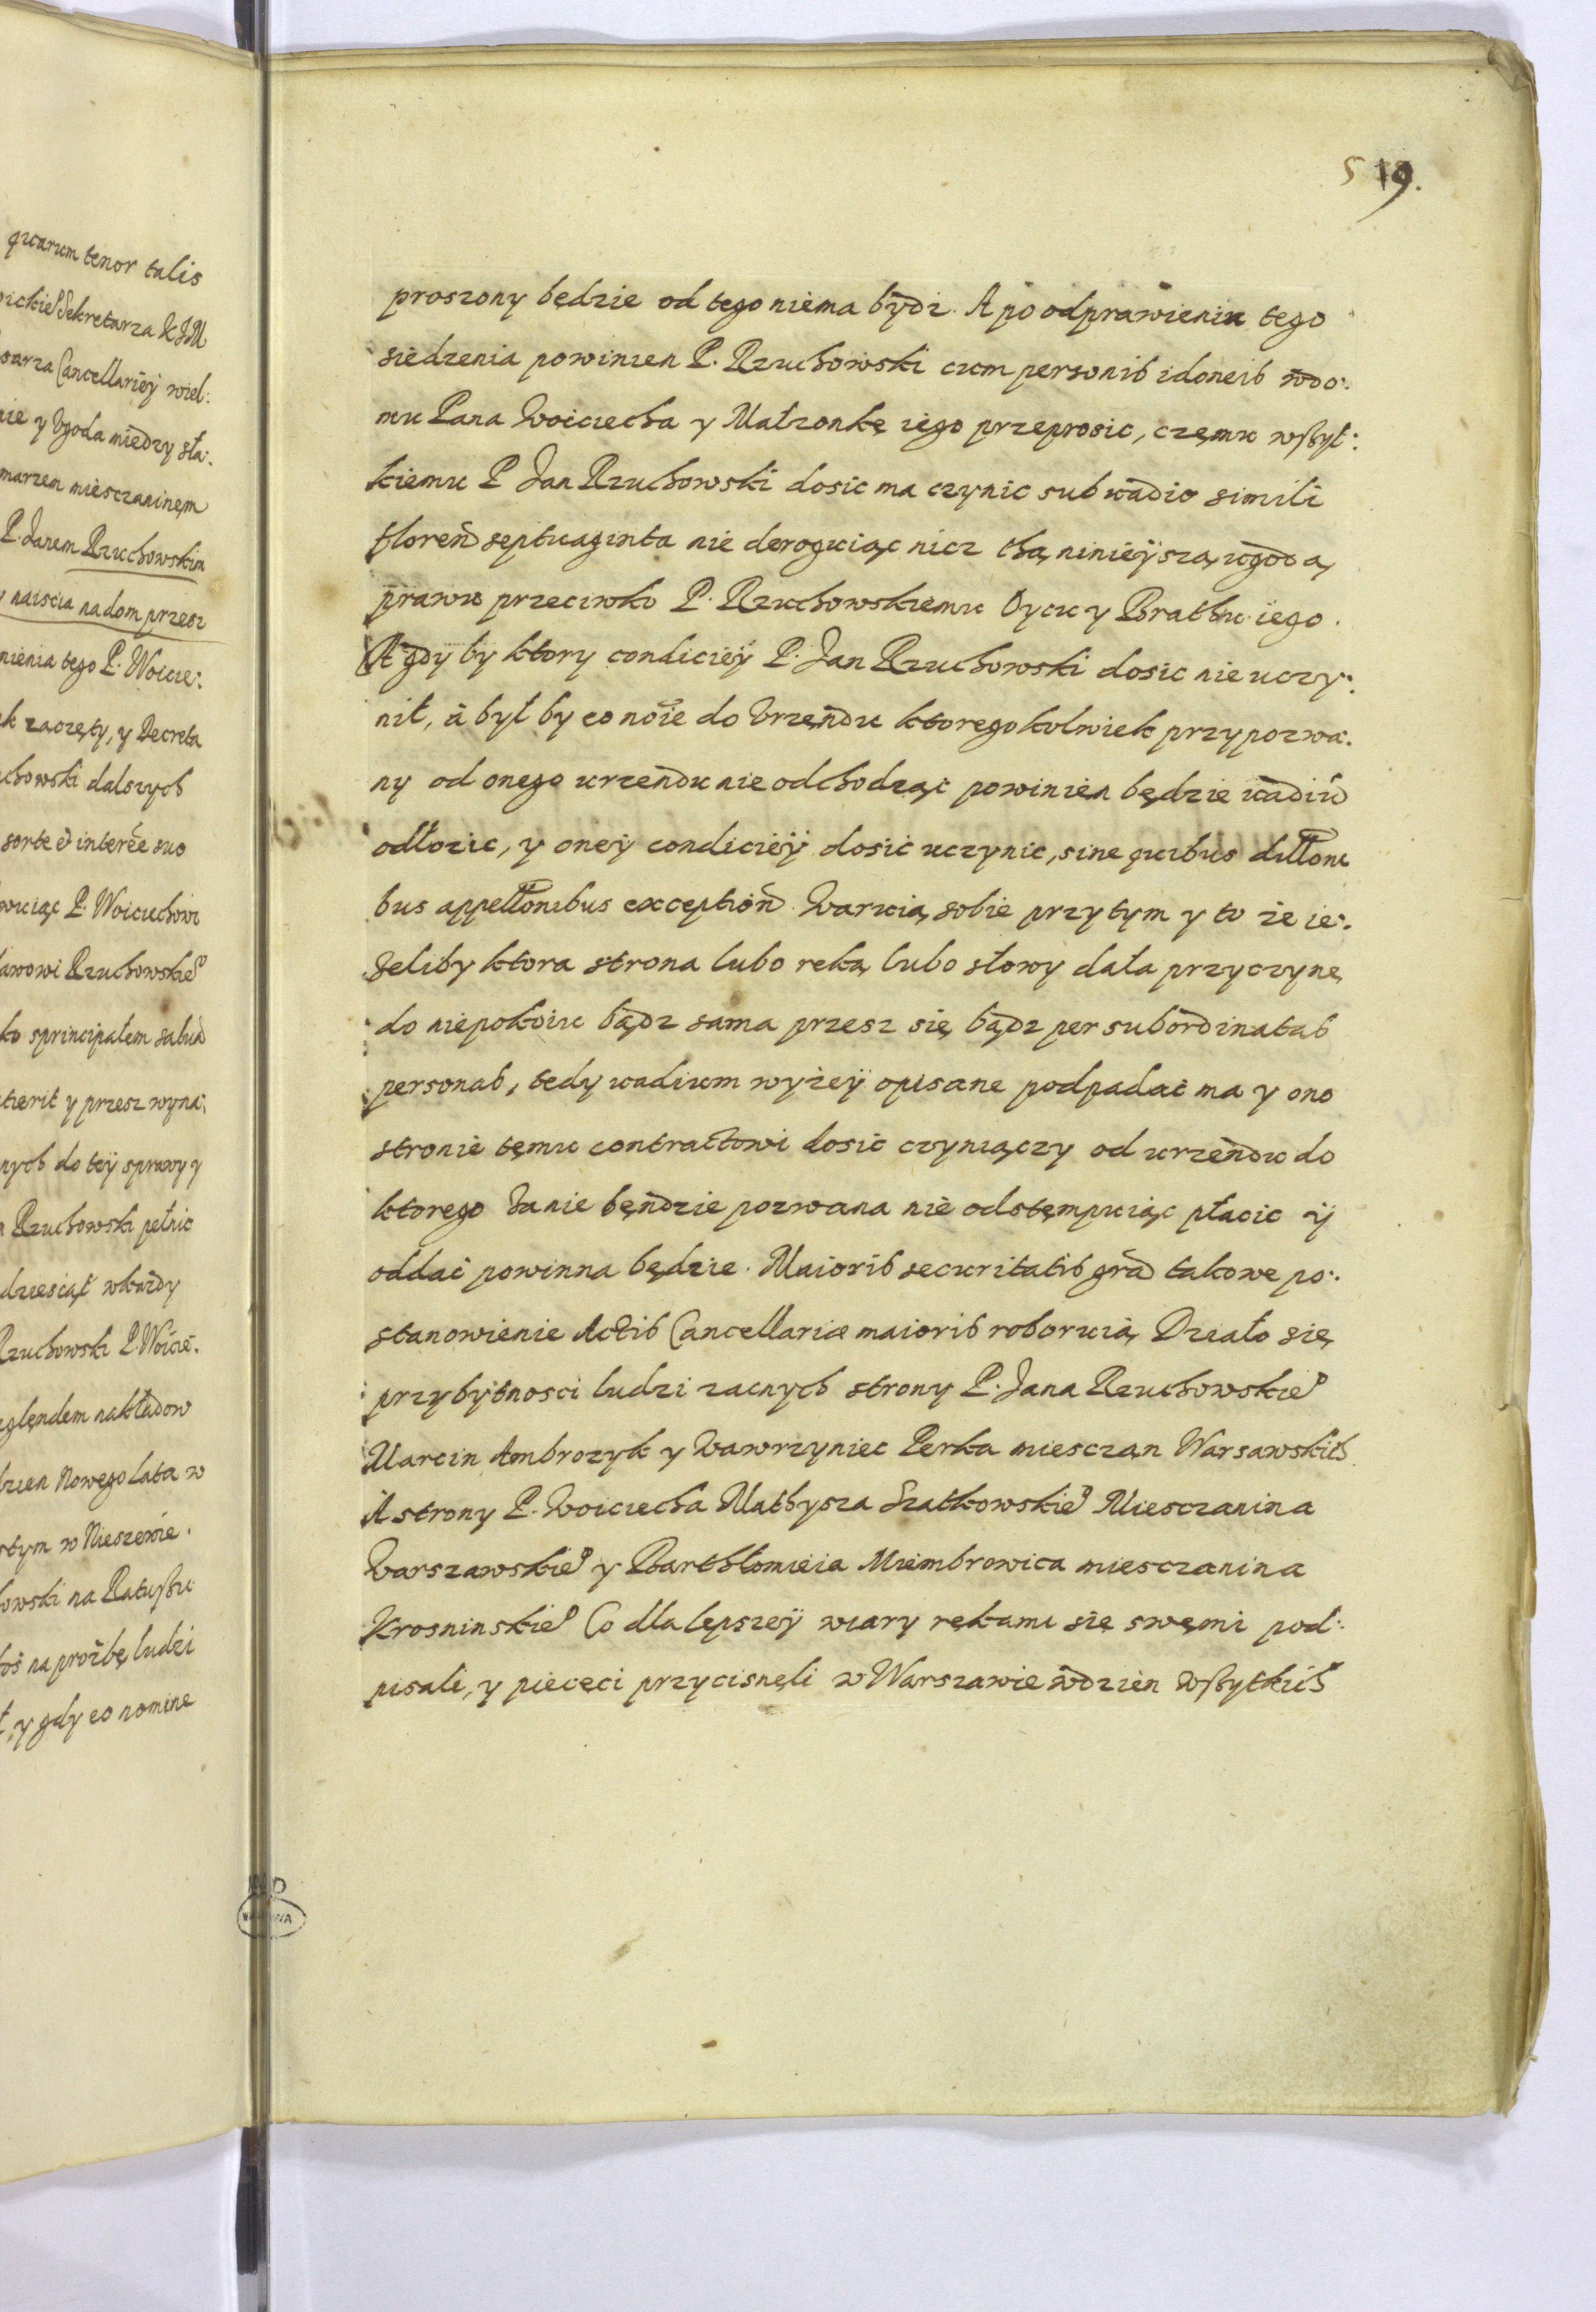 519.
quarum tenor talis
Sekretarza KJM
Cancellariey wiel:
nie y Ugoda miedzy sta:
marzem miesczaninem
P. Janem Rzuchowskim
naiscia na dom przesz
nienia tego P. Woicie:
k zaczęty, y Decreta
chowski dalszych
sorte et interee suo
P. Woiciechowi
Rzuchowskie͡o
ko sprincipałem
y przesz wyna:
nych do tey sprawy y
Rzuchowski pełnic
dziesiąt wkazdy
Rzuchowski P. Woicie:
nakładow
dzien Nowego Lata w
stym w Nieszewie.
owski na Ratußu
na proźbę ludzi
y gdy eo nomine
proszony będzie od tego niema bydz. A po odprawieniu tego
siedzenia powinien P. Rzuchowski cum personis idoneis wdo:
mu Pana Woiciecha y Małzonkę iego przeprosic, częmu wßyt:
kiemu P Jan Rzuchowski dosic ma czynic sub vadio simili
floren septuaginta nie deroguiąc nicz thą ninieyszą ugodą
prawu przeciwko P. Rzuchowskiemu Oycu y Brathu iego.
A gdy by ktory condiciey P. Jan Rzuchowski dosic nie uczy:
nił, a był by eo noie do Urzendu ktoregokolwiek przypozwa:
ny od onego urzendu nie odchodząc powinien będzie vadiu
odłozic, y oney condiciey dosic uczynic, sine quibus dillone
bus appellonibus exception. Waruią sobie przy tym y to ze ie:
zeliby ktora strona lubo reką lubo słowy dała przyczynę
do niepokoiu bądz sama przesz się bądz per subordinatas
personas, tedy vadium wyżey opisane podpadac ma y ono
stronie tęmu contractowi dosic czyniączy od urzendu do
ktorego Ianie bendzie pozwana nie odstempuiąc płacic y
oddac powinna będzie. Maioris securitatis gra takowe po:
stanowienie Actis Cancellariæ maioris roboruią Działo się
przybytnosci ludzi zacnych strony P. Jana Rzuchowskie͡o
Marcin Ambrozyk y Wawrzyniec Perka miesczan Warsawskich
A strony P. Woiciecha Mathysza Szatkowskie͡o Miesczanina
Warszawskie͡o y Barthłomieia Miembrowica miesczanina
Krosninskie͡o Co dla lepszey wiary rękami się swęmi pod:
pisali, y piececi przycisnęli w Warszawie wdzien Wßytkich